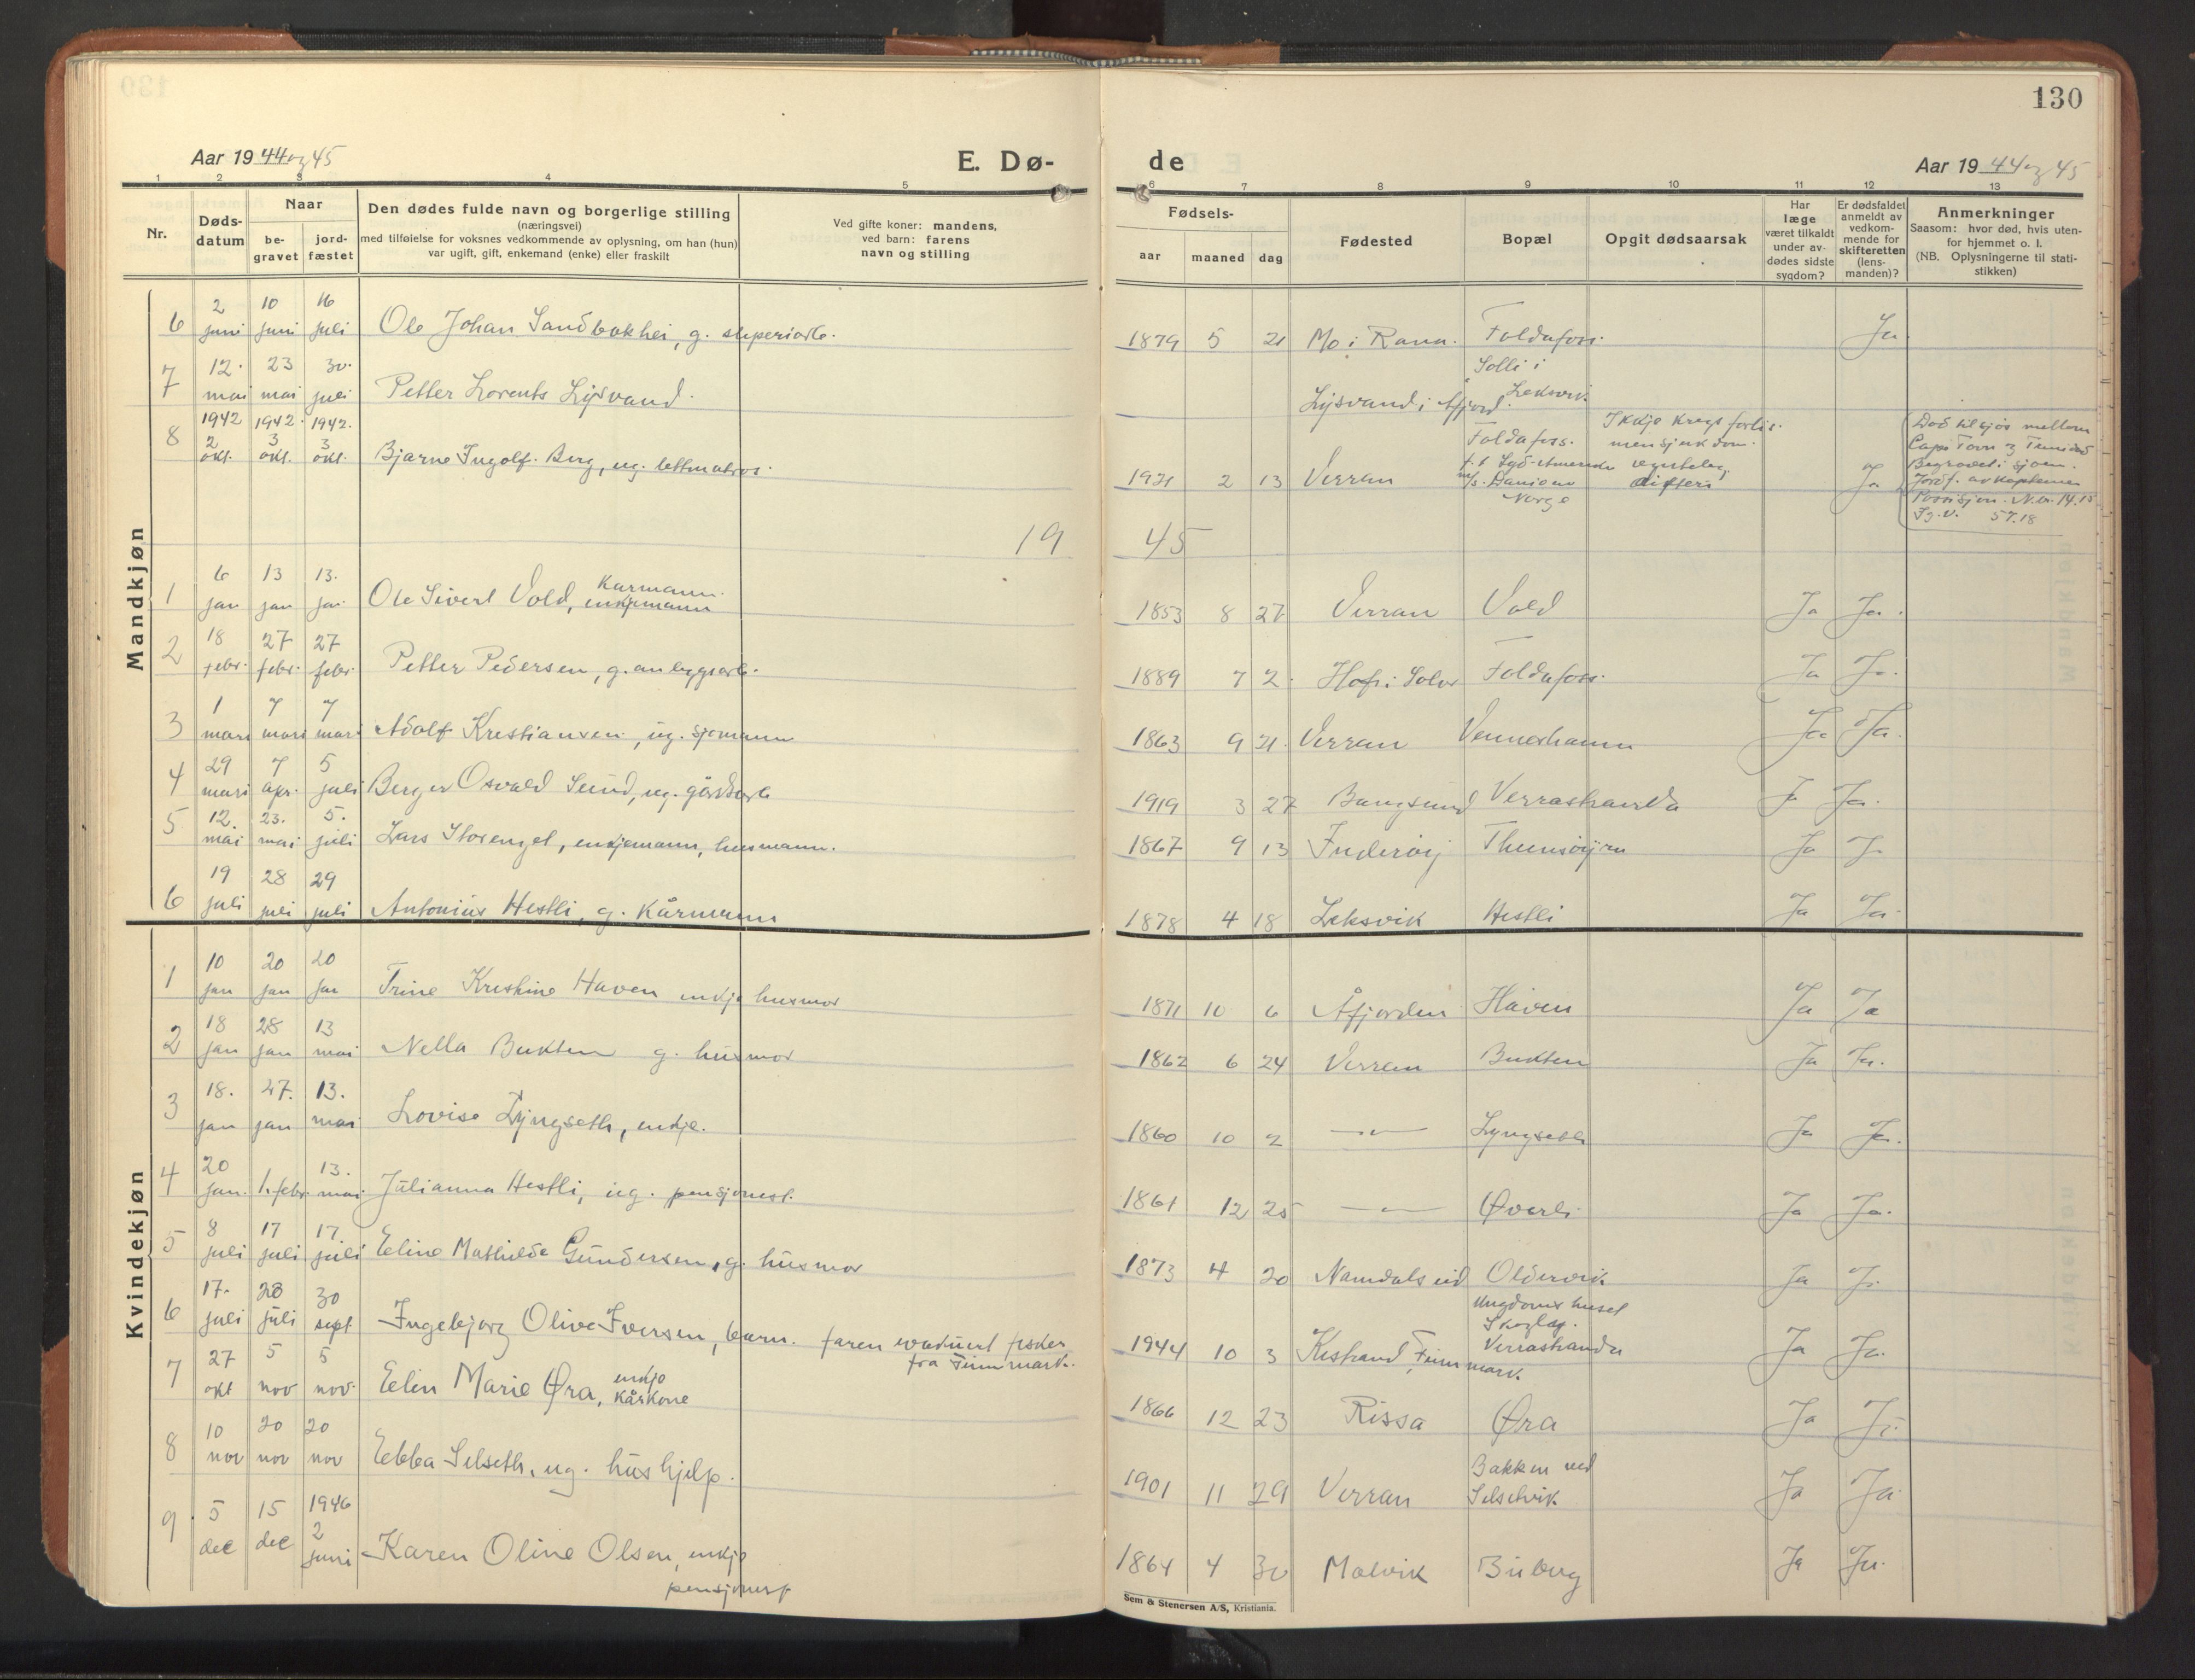 130
Aar 19 44 og 45
E. Dø-
de
Aar 19 44 og 45
1 2 3 4 5 6 7 8 9 10 11 12 13
Nr.
Døds-
datum
Naar
be-
gravet
jord-
fæstet
Den dødes fulde navn og borgerlige stilling
(næringsvei)
med tilføielse for voksnes vedkommende av oplysning, om han (hun)
var ugift, gift, enkemand (enke) eller fraskilt
Ved gifte koner: mandens,
ved barn: farens
navn og stilling
Fødsels-
aar maaned dag
Fødested
Bopæl
Opgit dødsaarsak
Har
læge
været tilkaldt
under av-
dødes sidste
sygdom?
Er dødsfaldet
anmeldt av
vedkom-
mende for
skifteretten
(lens-
manden)?
Anmerkninger
Saasom: hvor død, hvis uten-
for hjemmet o. l.
(NB. Oplysningerne til stati-
stikken)
Mandkjøn
6 2 juni 10 juni 16 juli Ole Johan Sandbakhei, g. 1879 5 21 Mo i Rana. Foldafoss. Ja
7 12. mai 23 mai 30. juli Petter Lorents Lysvand. Lysvand i Åfjord. Solli i Leksvik
8 1942 2 okt. 1942. 3 okt. 1942. 3 okt. Bjarne Ingolf Berg, ug. lettmatros. 1921 2 13 Verran Foldafoss. Ikkje krigsforlis. men sjukdom. Ja
Norge
Død til sjøs mellom
Begravet i sjøen.
Jordf. av kapteinen
57.18
1945
1 6 jan 13 jan 13. jan. Ole Sivert Vold, Kårmann. enkjemann 1853 8 27 Verran Vold Ja Ja.
2 18 febr. 27 febr. 27 febr. Petter Pedersen, g. anleggsarb. 1889 7 2. Hof i Solør Foldafoss. Ja Ja.
3 1 mars 7 mars 7 mars Adolf Kristiansen, ug. sjømann 1863 9 21. Verran Venneshamn Ja Ja.
4 29 mars 7 apr. 5 juli Berger Osvald Sund, ug. gårdsarb 1919 3 27 Bangsund Verrastranda Ja Ja.
5 12. mai 23. mai 5. juli Lars Storenget, enkjemann, husmann. 1867 9 13 Inderøy Ja Ja
6 19 juli 28 juli 29 juli Antonius Hestli, g. Kårmann 1878 4 18 Leksvik Hestli Ja Ja
Kvindekjøn
1 10 jan 20 jan 20 jan Trine Kristine Haven enkje husmor 1871 10 6 Åfjorden Haven Ja Ja
2 18 jan 28 jan 13 mai Nella Bukten g. husmor 1862 6 24 Verran Bukten Ja Ja.
3 18. jan 27. jan 13. mai Lovise Lyngseth, enkje. 1860 10 2 —"— Lyngseth Ja Ja.
4 20 jan. 1. febr. 13. mai Julianna Hestli, ug. pensjonist. 1861 12 25 —"— Øverli Ja Ja.
5 8 juli 17 juli 17. juli Eline Mathilde Gundersen, g. husmor 1873 4 20 Namdalseid Oldervik Ja Ja
6 17. juli 28 juli 30 sept Ingebjørg Olive Iversen, barn. faren evakuert fisker fra Finnmark. 1944 10 3 Kistrand, Finnmark. Ungdomshuset Verrastranda Ja Ja.
7 27 okt 5 nov 5 nov. Elin Marie Øra, enkje kårkone 1866 12 23 Rissa Øra Ja Ja
8 10 nov 20 nov 20 nov Ebba Selseth, ug. hushjelp. 1901 11 29 Verran Bakken ved Selsetvik Ja Ja
9 5 dec 15 dec 1946 2 juni Karen Oline Olsen, enkje pensjonist 1864 4 30 Malvik Buberg Ja Ja.
Sem & Stenersen A/S, Kristiania.